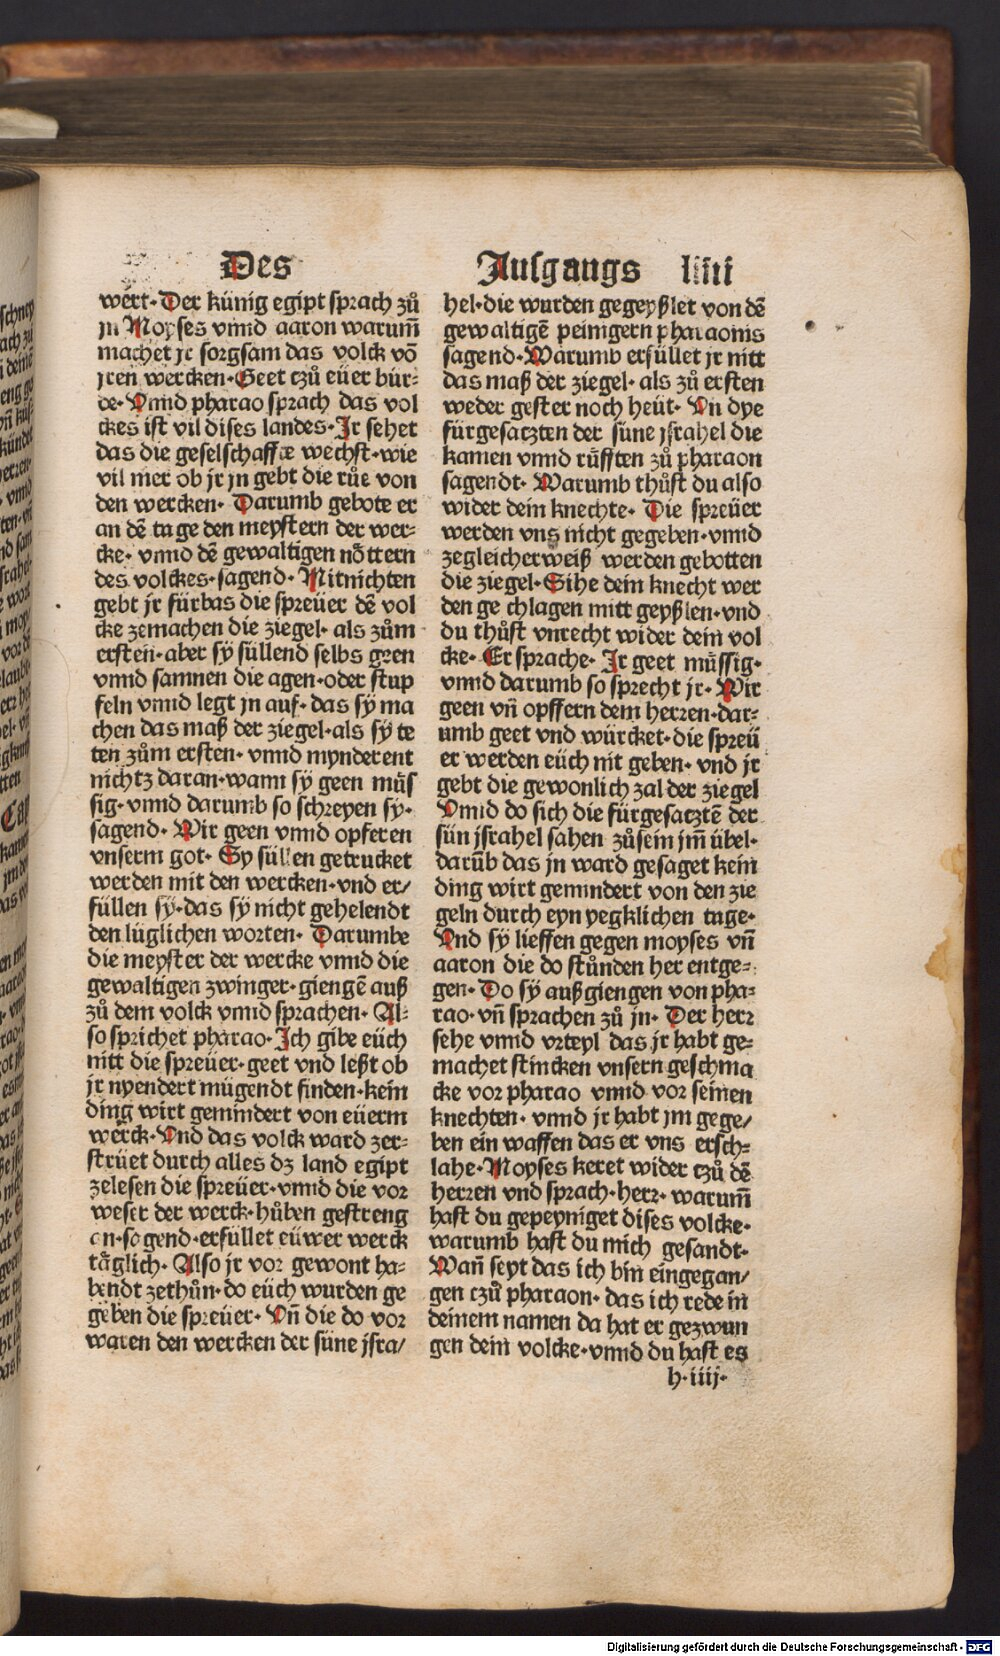 Des
Auſgangs liiii
wert. Der künig egipt ſprach zů
jn Moyſes vnnd aaron warum̃
machet jr ſorgſam das volck võ
jren wercken. Geet czů eüer bür⸗
de. Vnnd pharao ſprach das vol
ckes iſt vil diſes landes. Ir ſehet
das die geſelſchafft wechſt. wie
vil mer ob jr jn gebt die růe von
den wercken. Darumb gebote er
an dē tage den meyſtern der wer⸗
cke. vnnd dē gewaltigen nöttern
des volckes. ſagend. Mitnichten
gebt jr fürbas die ſpreüer dē vol
cke zemachen die ziegel. als zům
erſten. aber ſÿ ſüllend ſelbs geen
vnnd ſamnen die agen. oder ſtup
feln vnnd legt jn auf. das ſÿ ma
chen das maß der ziegel. als ſÿ te
ten zům erſten. vnnd mynderent
nichtz daran. wann ſÿ geen müſ
ſig. vnnd darumb ſo ſchreyen ſy.
ſagend. Wir geen vnnd opferen
vnſerm got. Sy ſüllen getrucket
werden mit den wercken. vnd er/
füllen ſÿ. das ſÿ nicht gehelendt
den lüglichen worten. Darumbe
die meyſter der wercke vnnd die
gewaltigen zwinger. giengē auß
zů dem volck vnnd ſprachen. Al⸗
ſo ſprichet pharao. Ich gibe eüch
nitt die ſpreüer. geet vnd leßt ob
jr nyendert mügendt finden. kein
ding wirt gemindert von eüerm
werck. Vnd das volck ward zer⸗
ſtrüet durch alles dz land egipt
zeleſen die ſpreüer. vnnd die vor
weſer der werck. hůben geſtreng
an. ſagend. erfüllet eüwer werck
täglich. Alſo jr vor gewont ha⸗
bendt zethůn. do eüch wurden ge
geben die ſpreüer. Vñ die do vor
waren den wercken der ſüne jſra/
hel. die wurden gegeyßlet von dē
gewaltigē peinigern pharaonis
ſagend. Warumb erfüllet jr nitt
das maß der ziegel. als zů erſten
weder geſter noch heüt. Vn dye
fürgeſatzten der ſüne jſrahel die
kamen vnnd rüfften zů pharaon
ſagendt. Warumb thůſt du alſo
wider dein knechte. Die ſpreüer
werden vns nicht gegeben. vnnd
zegleicherweiß werden gebotten
die ziegel. Sihe dein knecht wer
den ge chlagen mitt geyßlen. vnd
du thůſt vnrecht wider dein vol
cke. Er ſprache. Ir geet müſſig.
vnnd darumb ſo ſprecht jr. Wir
geen vñ opffern dem herren. dar⸗
umb geet vnd würcket. die ſpreü
er werden eüch nit geben. vnd jr
gebt die gewonlich zal der ziegel
Vnnd do ſich die fürgeſatztē der
ſün jſrahel ſahen zůſein jm̃ übel.
darūb das jn ward geſaget kein
ding wirt gemindert von den zie
geln durch eyn yegklichen tage.
Vnd ſÿ lieffen gegen moyſes vñ
aaron die do ſtůnden her entge⸗
gen. Do ſÿ außgiengen von pha⸗
rao. vñ ſprachen zů jn. Der herr
ſehe vnnd vrteyl das jr habt ge⸗
machet ſtincken vnſern geſchma
cke vor pharao vnnd vor ſeinen
knechten. vnnd jr habt jm gege/
ben ein waffen das er vns erſch⸗
lahe. Moyſes keret wider czů dē
herren vnd ſprach. herr. warum̃
haſt du gepeyniget diſes volcke.
warumb haſt du mich geſandt.
Wañ ſeyt das ich bin eingegan/
gen czů pharaon. das ich rede in
deinem namen da hat er gezwun
gen dein volcke. vnnd du haſt es
h. iiij.
Digitalisierung gefördert durch die Deutsche Forschungsgemeinschaft - DFG